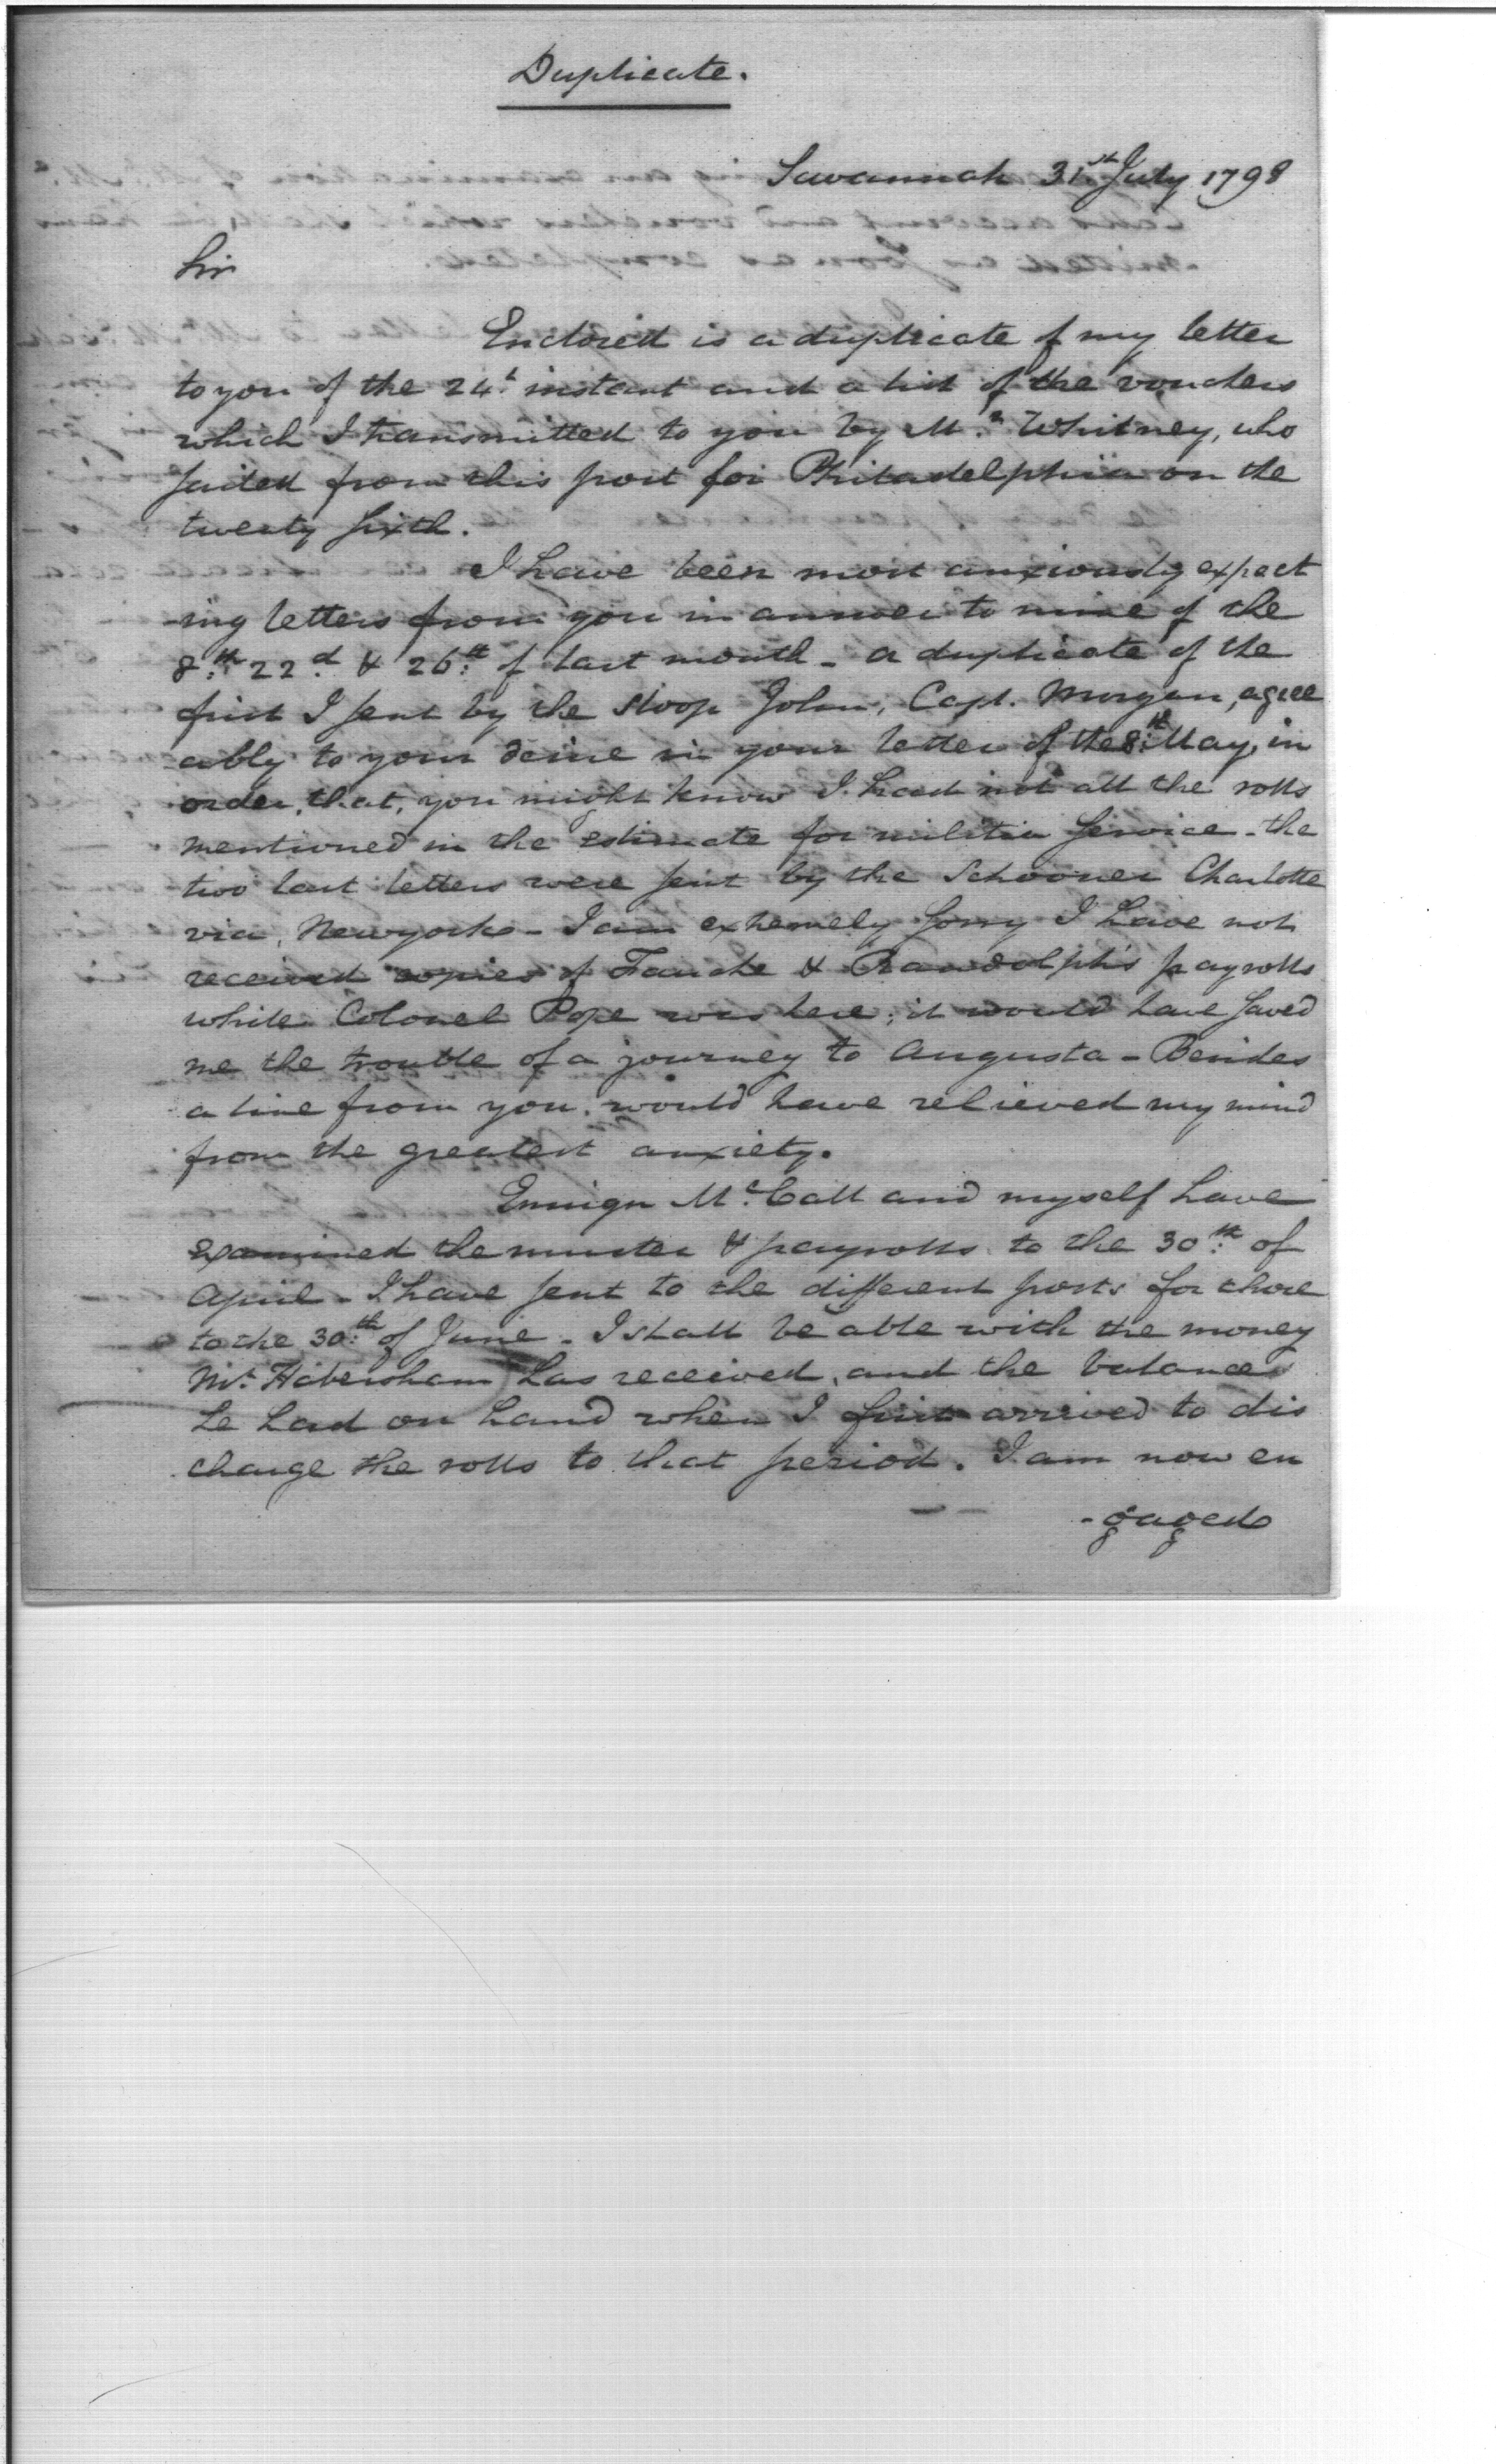 Duplicate.
Savannah 31st July 1798
Sir
Enclosed is a duplicate of my letter
to you of the 24th instant and a list of the vouchers
which I transmitted to you by Mr. Whitney, who
sailed from this port for Philadelphia on the
twenty sixth.
I have been most anxiously expect
-ing letters from you in answer to mine of the
8th 22d & 26th of last month - a duplicate of the
first I sent by the sloop John, Capt. Morgan, agree
-ably to your desire in your letter of the 8th May, in
order, that, you might know I had not all the rolls
mentioned in the estimate for militia service - the
two last letters were sent by the Schooner Charlotte
via, Newyork - I am extremely sorry I have not
received copies of Fauche & Randolph's payrolls
while Colonel Pope was here; it would have saved
me the trouble of a journey to Augusta - Besides
a line from you would have relieved my mind
from the greatest anxiety.
Ensign McCall and myself have
examined the muster & payrolls to the 30th of
April - I have sent to the different posts for those
to the 30th of June - I shall be able with the money
Mr. Habersham has received, and the balance
he had on hand when I first arrived to dis
charge the rolls to that period. I am now en
-gaged